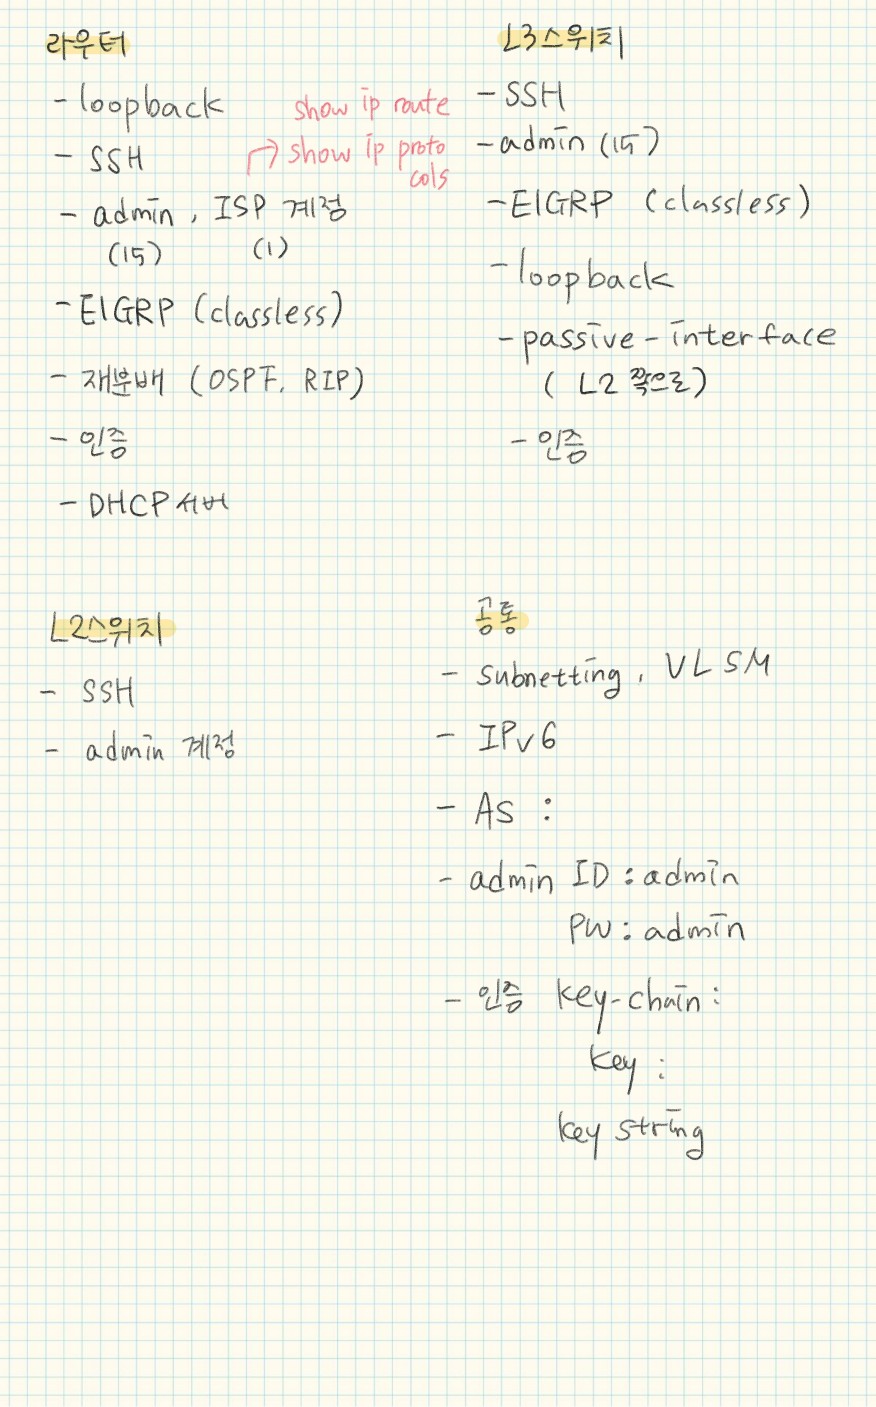 라우터
- loopback
- SSH
- admin, ISP 계정
(15) (1)
- EIGRP (classless)
- 재분배 (OSPF, RIP)
- 인증
- DHCP 서버
show ip route
→ show ip proto
cols
L3스위치
- SSH
- admin (15)
- EIGRP (classless)
- loopback
- passive-interface
( L2 쪽으로)
- 인증
L2스위치
- SSH
- admin 계정
공통
- subnetting, VLSM
- IPv6
- AS :
- admin ID : admin
PW : admin
- 인증 key-chain :
key :
key string